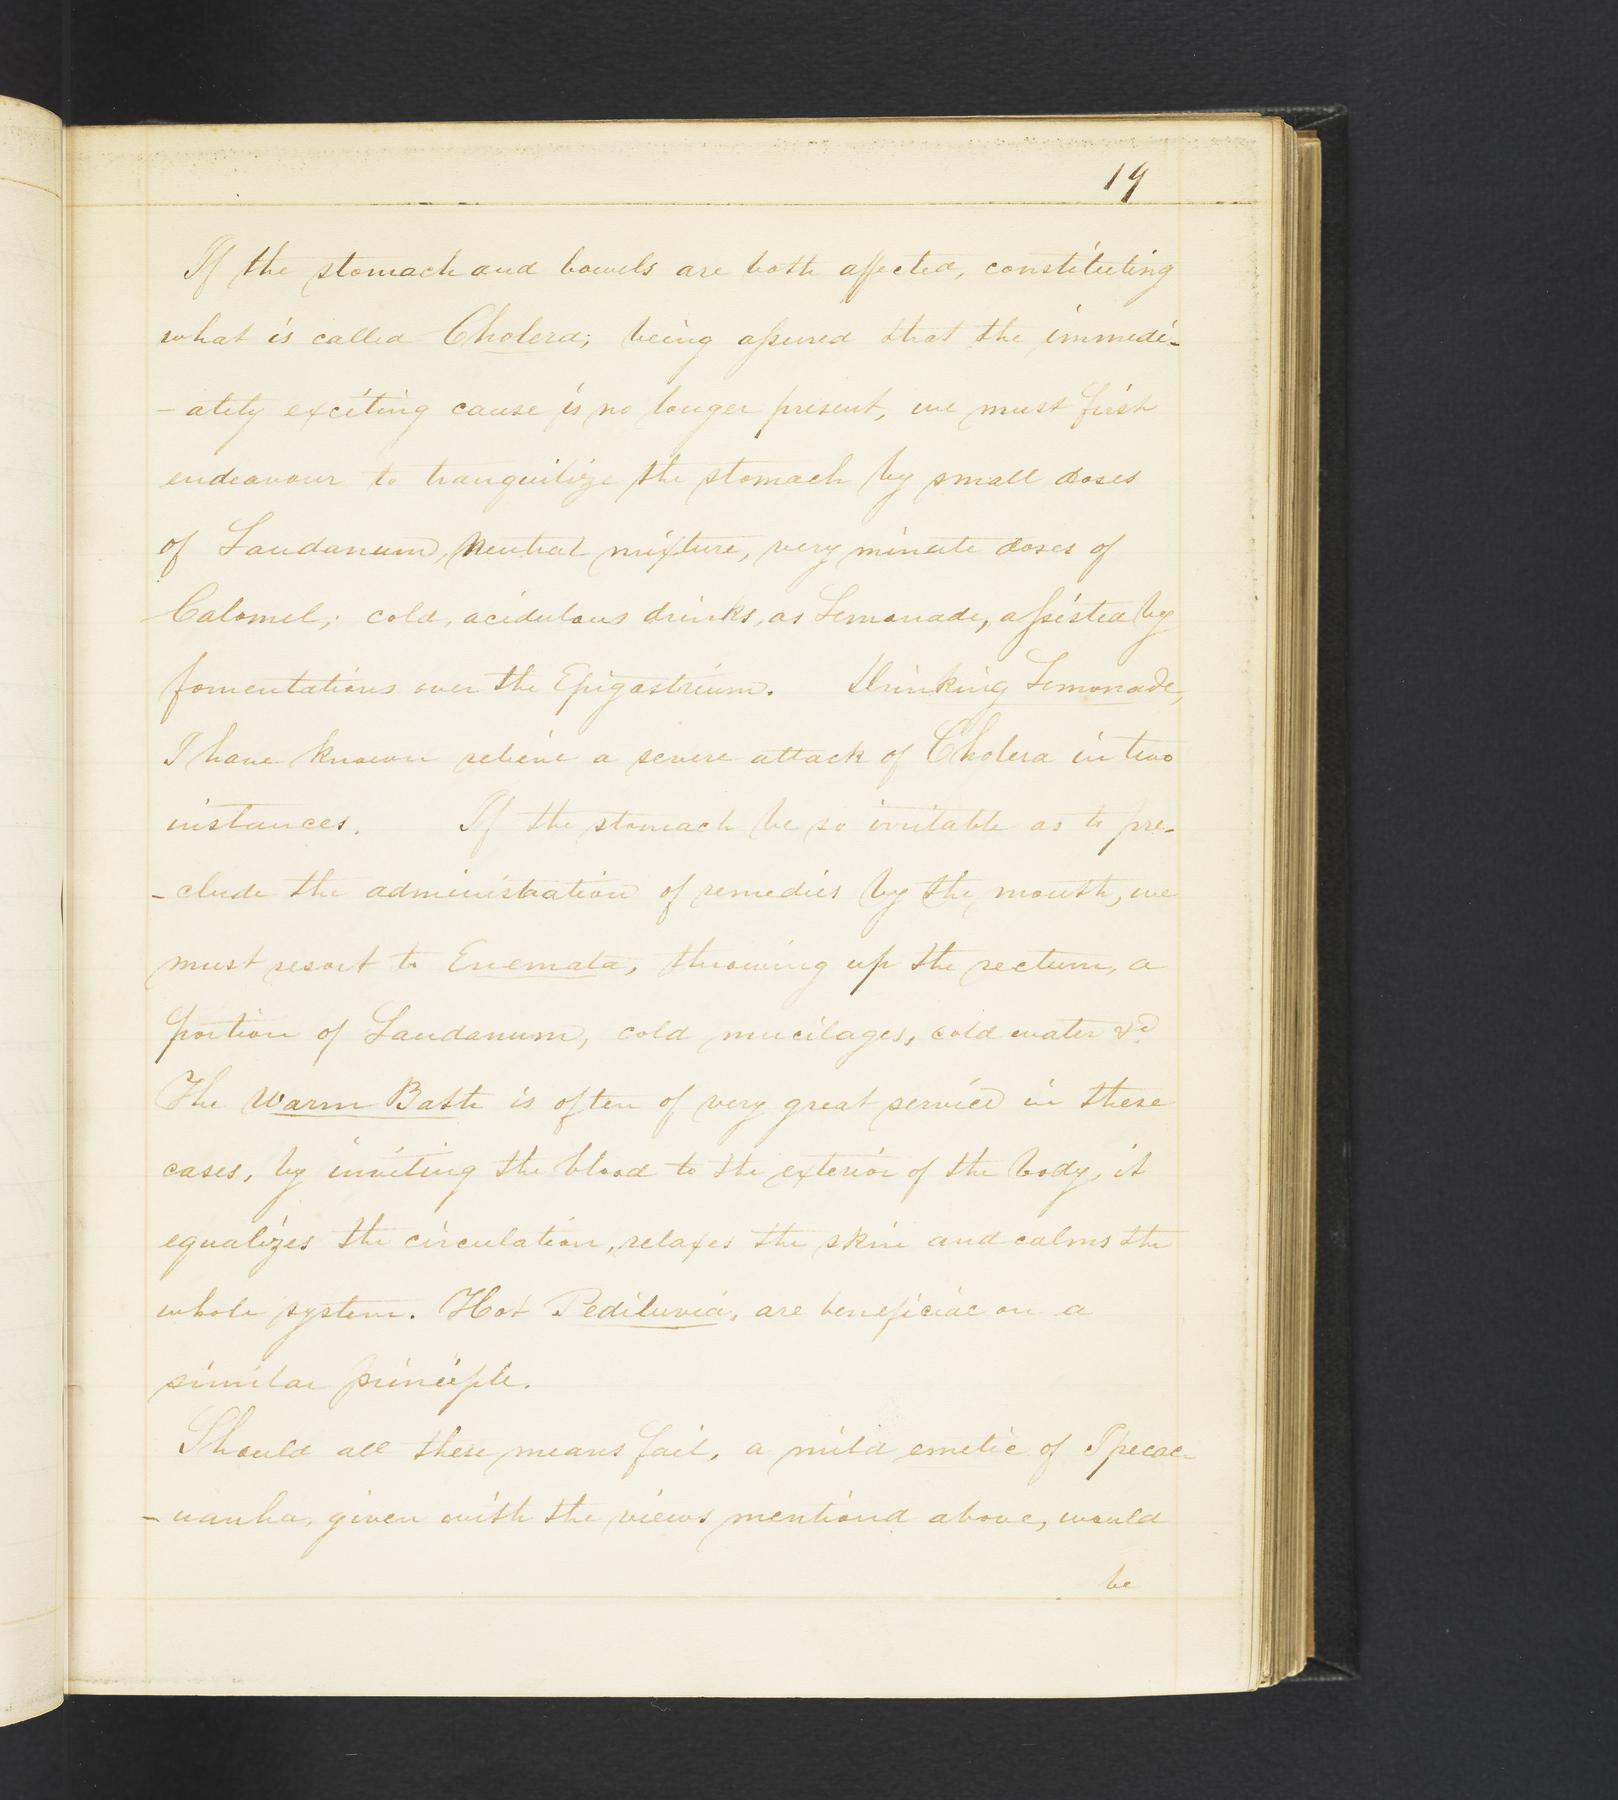 19
If the stomach and bowels are both affected, constituting
what is called Cholera; being assured that the immedi-
-ately exciting cause is no longer present, we must first
endeavour to tranquilize the stomach by small doses
of Laudanum, Neutral mixture, very minute doses of
Calomel; cold, acidulous drinks, as Lemonade, assisted by
fomentations over the Epigastrium. Drinking Lemonade,
I have known relieve a severe attack of Cholera in two
instances. If the stomach be so irritable as to pre-
-clude the administration of remedies by the mouth, we
must resort to Enemata, throwing up the rectum, a
portion of Laudanum, cold mucilages, cold water &c
The Warm Bath is often of very great service in these
cases, by inviting the blood to the exterior of the body, it
equalizes the circulation, relaxes the skin and calms the
whole system. Hot Pediluvia, are beneficial on a
similar principle.
Should all these means fail, a mild emetic of Ipecac-
-uanha, given with the views mentiond above, would
be